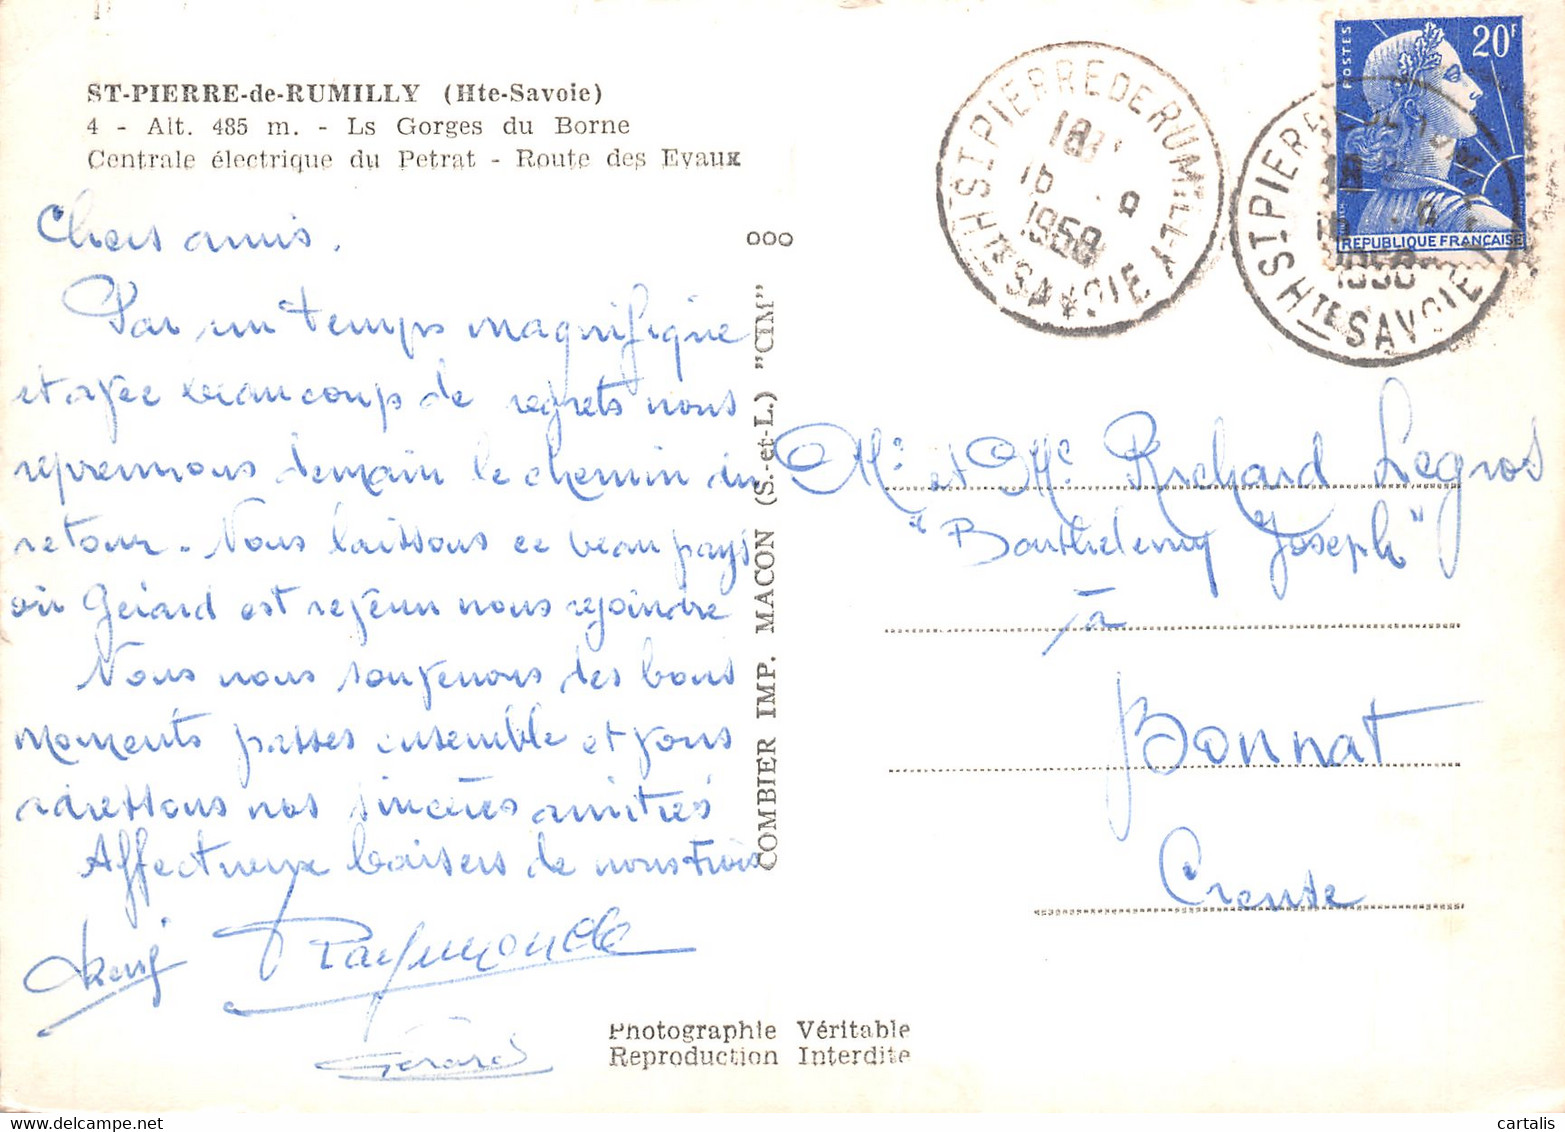 ST-PIERRE-de-RUMILLY (Hte-Savoie)
4 - Alt. 485 m. - Ls Gorges du Borne
Centrale électrique du Petrat - Route des Evaux
Chers amis.
Par un temps magnifique
et avec beaucoup de regrets nous
reprennons demain le chemin du
retour. Nous laissons ce beau pays
où Gérard est revenu nous rejoindre
Nous nous souvenons des bons
moments passés ensemble et vous
adressons nos sincères amitiés
Affectueux baisers de nous trois
Raymonde
Gérard
ooo
COMBIER IMP. MACON (S.-et-L.) "CIM"
Photographie Véritable
Reproduction Interdite
ST PIERRE DE RUMILLY
HTE SAVOIE
18
16 - 9
1958
POSTES
20F
REPUBLIQUE FRANÇAISE
ST PIERRE DE RUMILLY
HTE SAVOIE
1958
Mr et Me Richard Legros
"Barthelemy Joseph"
à
Bonnat
Creuse
cartalis